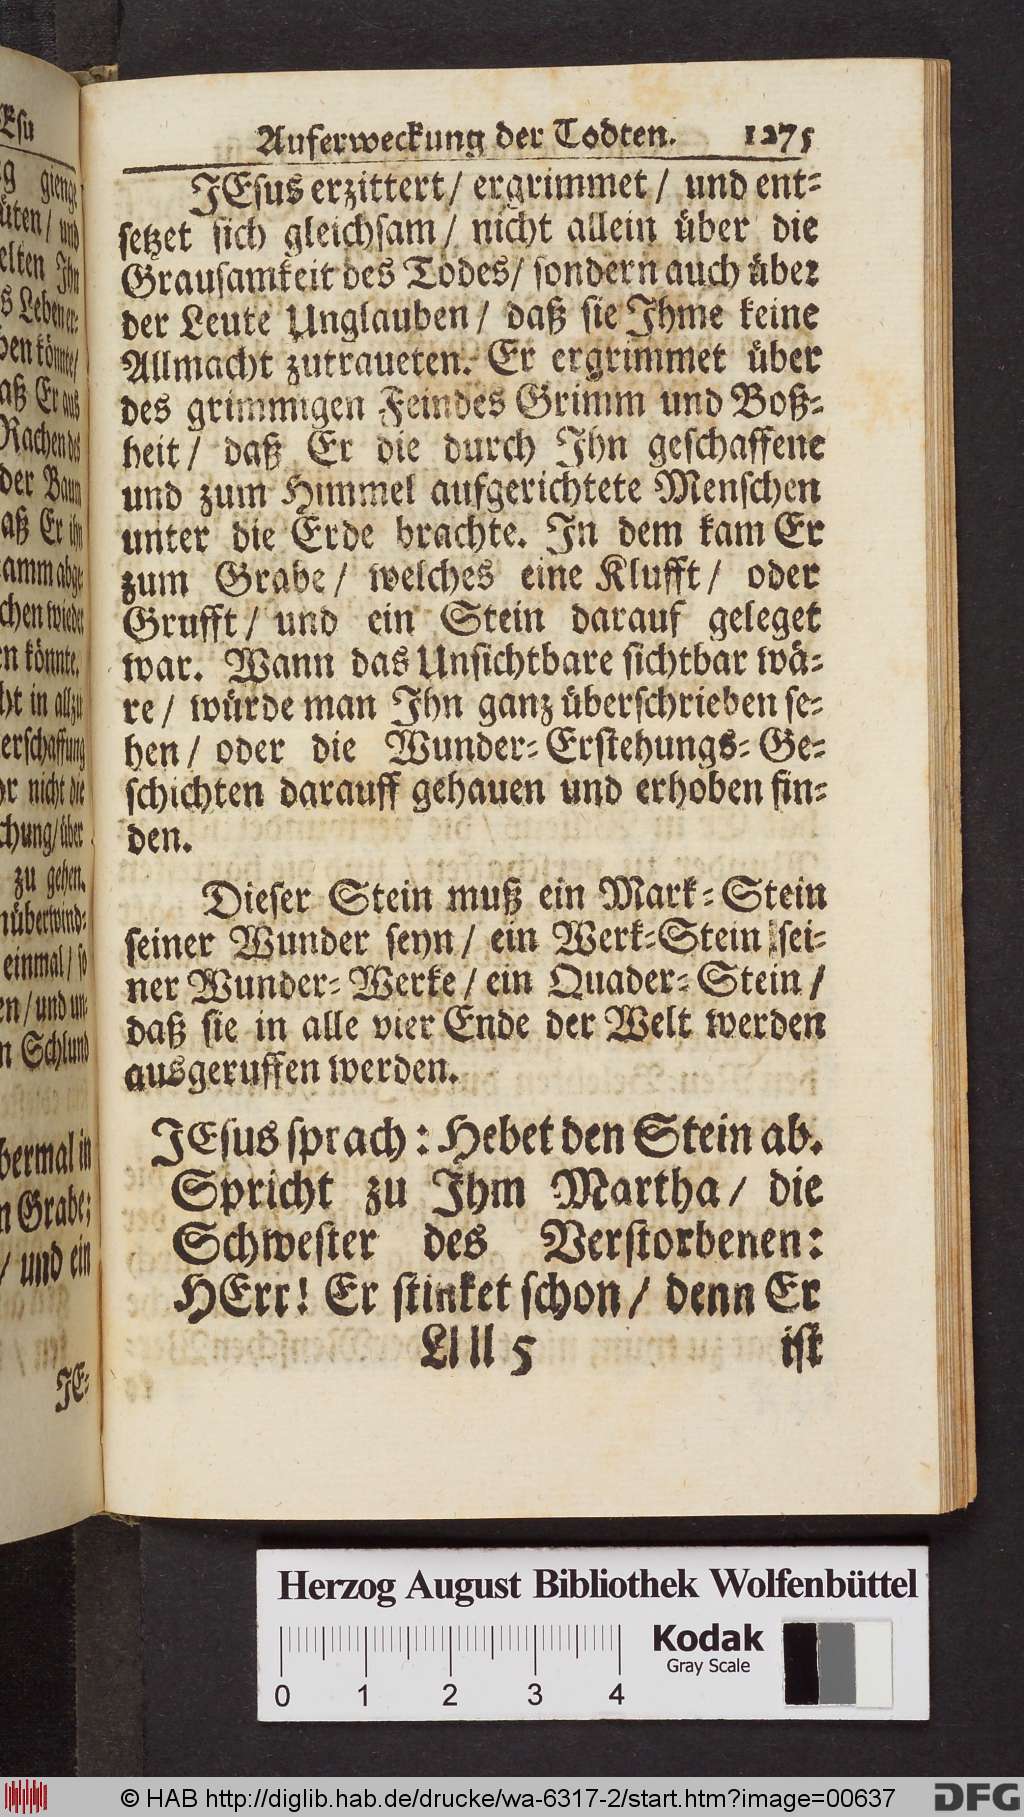 Esu
gienge
üten / und
elten Ihn
s Leben er-
ben könnte /
aß Er aus
Rachen des
der Baum
aß Er ihn
amm abge
chen wieder
n könnte.
ht in allzu
erschaffung
hr nicht die
chung / über
zu gehen.
nüberwind-
einmal / so
en / und un-
n Schlund
bermal in
n Grabe;
/ und ein
JE-
Auferweckung der Todten. 1275
JEsus erzittert / ergrimmet / und ent-
setzet sich gleichsam / nicht allein über die
Grausamkeit des Todes / sondern auch über
der Leute Unglauben / daß sie Ihme keine
Allmacht zutraueten. Er ergrimmet über
des grimmigen Feindes Grimm und Boß-
heit / daß Er die durch Ihn geschaffene
und zum Himmel aufgerichtete Menschen
unter die Erde brachte. In dem kam Er
zum Grabe / welches eine Klufft / oder
Grufft / und ein Stein darauf geleget
war. Wann das Unsichtbare sichtbar wä-
re / würde man Ihn ganz überschrieben se-
hen / oder die Wunder-Erstehungs-Ge-
schichten darauff gehauen und erhoben fin-
den.
Dieser Stein muß ein Mark-Stein
seiner Wunder seyn / ein Werk-Stein sei-
ner Wunder-Werke / ein Quader-Stein /
daß sie in alle vier Ende der Welt werden
ausgeruffen werden.
JEsus sprach: Hebet den Stein ab.
Spricht zu Ihm Martha / die
Schwester des Verstorbenen:
HErr! Er stinket schon / denn Er
Ll ll 5 ist
Herzog August Bibliothek Wolfenbüttel
Kodak
Gray Scale
0 1 2 3 4
© HAB http://diglib.hab.de/drucke/wa-6317-2/start.htm?image=00637
DFG